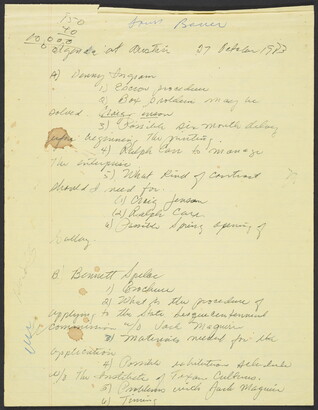 150
40
00,000
at Austin 27 October 1983
A) Denny Ingram
1) Escrow procedure
2) Box problem may be
solved
3) Possible six month delay
beginning the printing
4) Ralph Carr to manage
The enterprise
5) What kind of contract
should I need for
(1) Oscig Jenson
(2) Ralph Carr
6) Possible Spring opening of
Gallery
B. Bennett Spelce
1) Brochure
2) What is the procedure of
applying to the State Sesquicentennial
Commission w/o Jack Maguire
3) Materials needed for the
application
4) Possible exhibition schedule
w/o the Institute of Texan Cultures.
5) Problem with Jack Maguire
6) Timing